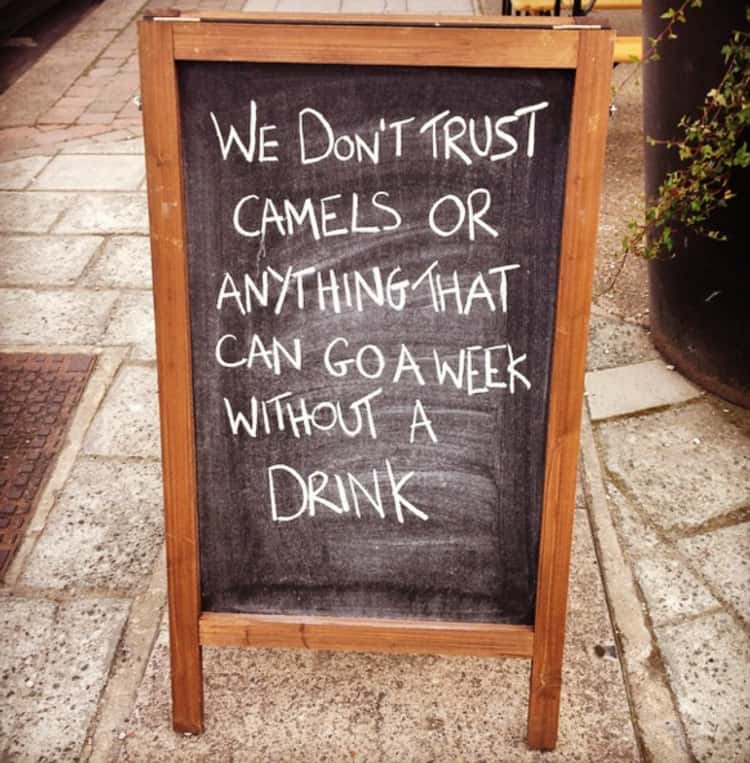 WE DON'T TRUST
CAMELS OR
ANYTHING THAT
CAN GO A WEEK
WITHOUT A
DRINK